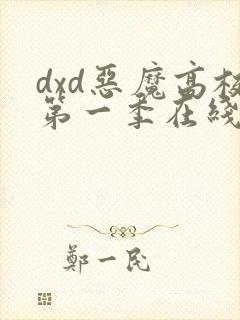 dxd惡魔高校
第一季在綫
鄭一民